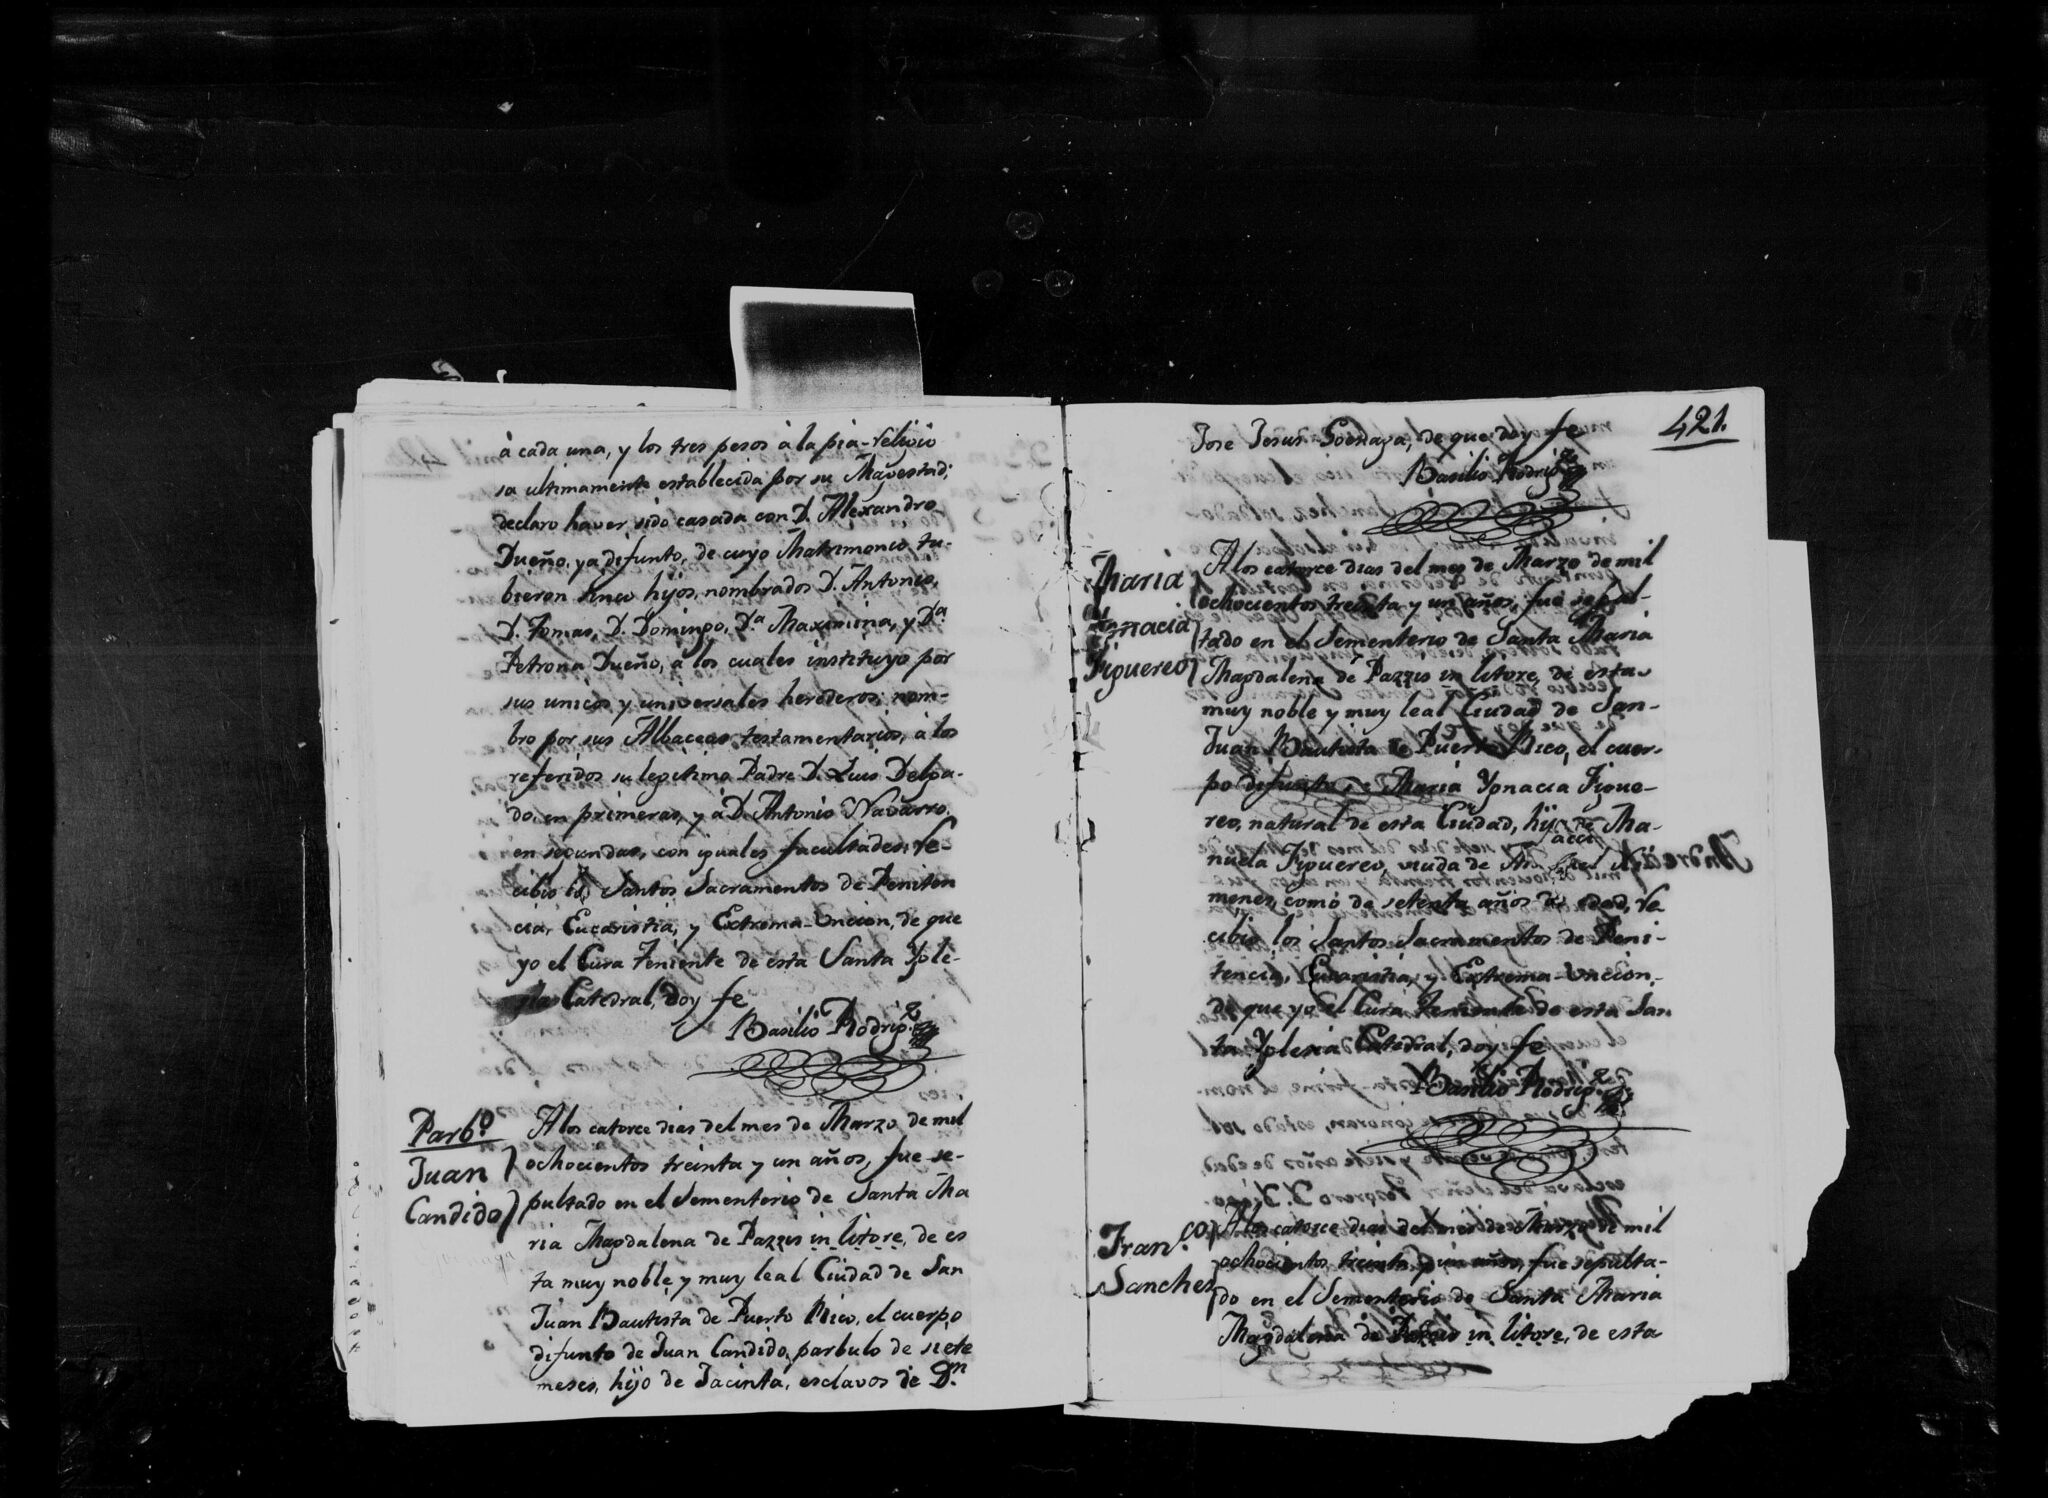 à cada una, y los tres pesos à la pia-religio
sa ultimamente establecida por su Magestad;
declaro haver sido casada con D. Alexandro
Dueño, ya difunto, de cuyo Matrimonio tu-
bieron sinco hijos, nombrados D. Antonio,
D. Tomas, D. Domingo, Dª Maximina, y Dª
Petrona Dueño, à los cuales instituyo por
sus unicos y universales herederos; nom-
bro por sus Albaceas testamentarios, à los
referidos su legitimo Padre D. Luis Delga-
do, en primeras, y à D. Antonio Navarro,
en segundas, con iguales facultades: re-
cibio los Santos Sacramentos de Peniten
cia, Eucaristia, y Extrema-Uncion, de que
yo el Cura Teniente de esta Santa Ygle-
sia Catedral, doy fe
Basilio Rodrigz
Parbº
Juan
Candido
A los catorce dias del mes de Marzo de mil
ochocientos treinta y un años, fue se-
pultado en el Sementerio de Santa Ma
ria Magdalena de Pazzis in litore, de es
ta muy noble y muy leal Ciudad de San
Juan Bautista de Puerto Rico, el cuerpo
difunto de Juan Candido, parbulo de siete
meses, hijo de Jacinta, esclavos de Dn
421.
Jose Jesus Goenaga, de que doy fe
Basilio Rodrigz
Maria
Ygnacia
Figuereo
A los catorce dias del mes de Marzo de mil
ochocientos treinta y un años, fue sepul-
tado en el Sementerio de Santa Maria
Magdalena de Pazzis in litore, de esta
muy noble y muy leal Ciudad de San-
Juan Bautista de Puerto Rico, el cuer-
po difunto de Maria Ygnacia Figue-
reo, natural de esta Ciudad, hija de Ma-
nuela Figuereo, viuda de
menes, como de setenta años de edad, re
cibio los Santos Sacramentos de Peni-
tencia, Eucaristia, y Extrema-Uncion,
de que yo el Cura Teniente de esta San
ta Yglesia Catedral, doy fe
Basilio Rodrigz
Franco
Sanchez
A los catorce dias del mes de Marzo de mil
ochocientos treinta y un años, fue sepulta-
do en el Sementerio de Santa Maria
Magdalena de Pazzis in litore, de esta